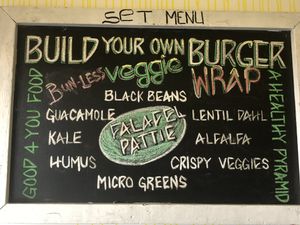 SET MENU
BUILD YOUR OWN BURGER
BUN-LESS veggie WRAP
BLACK BEANS
GUACAMOLE
LENTIL DAHL
FALAFEL
PATTIE
KALE
ALFALFA
HUMUS
CRISPY VEGGIES
MICRO GREENS
GOOD 4 YOU FOOD
A HEALTHY PYRAMID